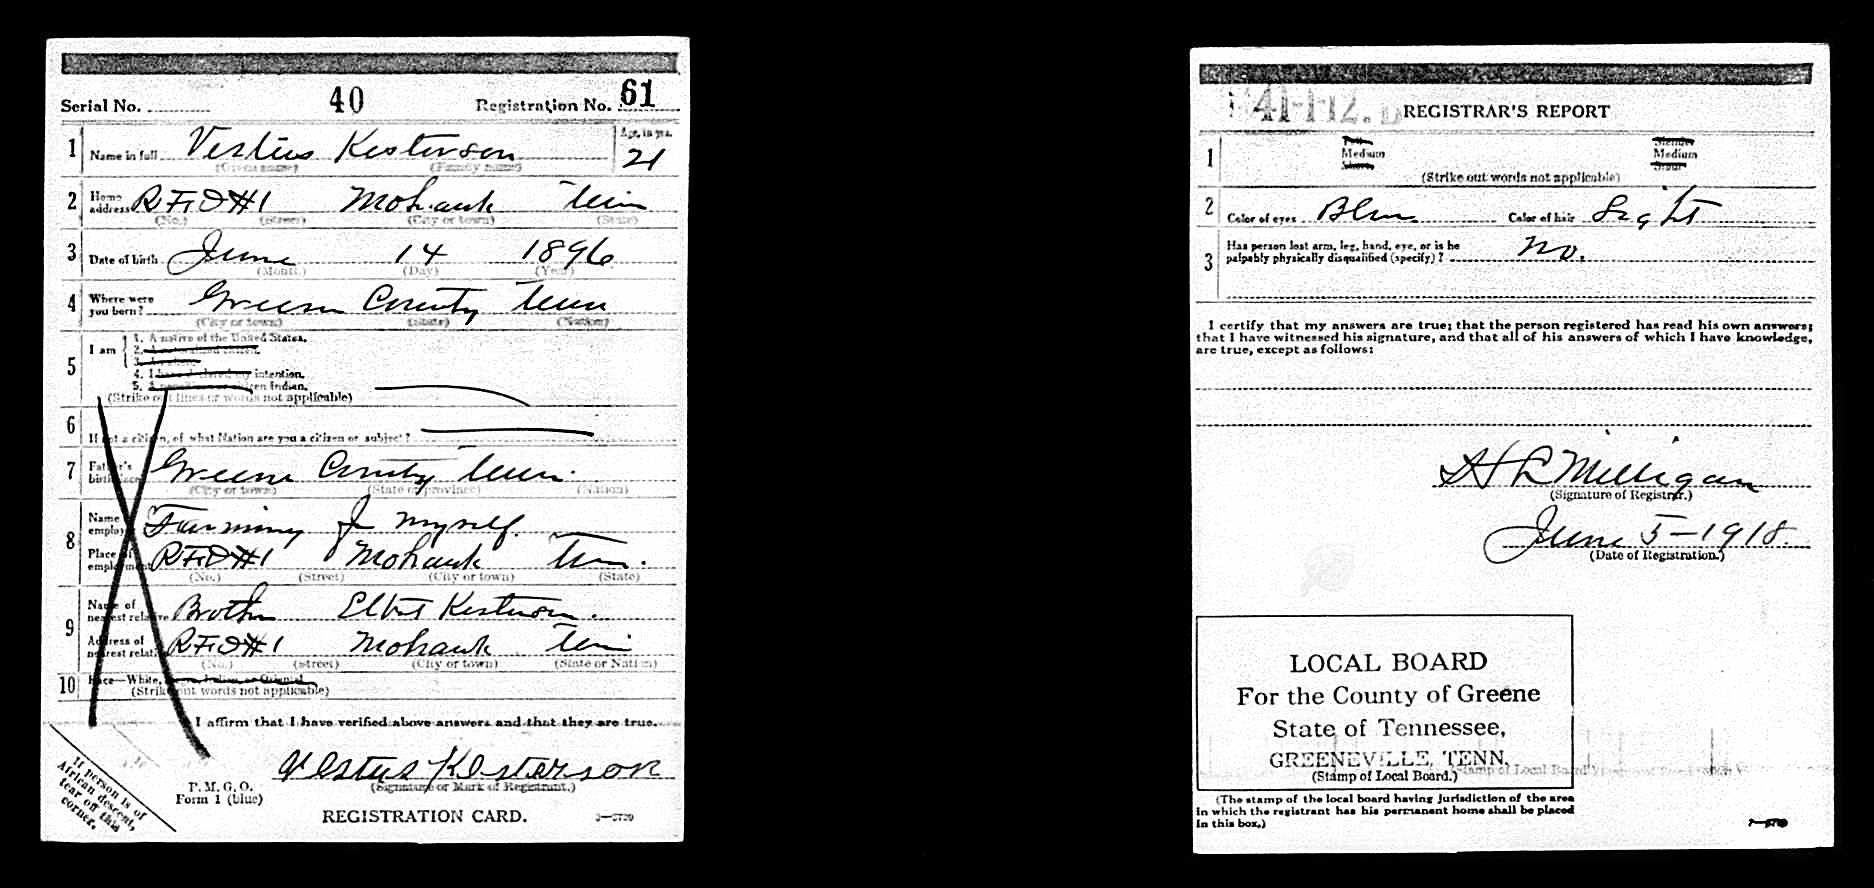 Serial No. 40 Registration No. 61
1 Name in full Vestus Kesterson Age, in yrs. 21
(Given name) (Family name)
2 Home address RFD#1 Mohawk Tenn
(No.) (Street) (City or town) (State)
3 Date of birth June 14 1896
(Month) (Day) (Year)
4 Where were you born? Greene County Tenn
(City or town) (State) (Nation)
5 I am
1. A native of the United States.
2. A naturalized citizen.
3. An alien.
4. I have declared my intention.
5. A noncitizen or citizen Indian.
(Strike out lines or words not applicable)
6 If not a citizen, of what Nation are you a citizen or subject?
7 Father's birthplace Greene County Tenn.
(City or town) (State or province) (Nation)
8 Name of employer Farming f myself.
Place of employment RFD#1 Mohawk Tenn.
(No.) (Street) (City or town) (State)
9 Name of nearest relative Brother Elbert Kesterson.
Address of nearest relative RFD#1 Mohawk Tenn
(No.) (Street) (City or town) (State or Nation)
10 Race—White, Negro, Indian, or Oriental
(Strike out words not applicable)
I affirm that I have verified above answers and that they are true.
Vestus Kesterson
(Signature or Mark of Registrant.)
P. M. G. O.
Form 1 (blue)
REGISTRATION CARD.
If person is of
African descent,
tear off this
corner.
41-1-12. REGISTRAR'S REPORT
1 Tall Slender
Medium Medium
Short Stout
(Strike out words not applicable)
2 Color of eyes Blue Color of hair Light
3 Has person lost arm, leg, hand, eye, or is he No.
palpably physically disqualified (specify)?
I certify that my answers are true; that the person registered has read his own answers;
that I have witnessed his signature, and that all of his answers of which I have knowledge,
are true, except as follows:
H L Milligan
(Signature of Registrar.)
June 5-1918.
(Date of Registration.)
LOCAL BOARD
For the County of Greene
State of Tennessee,
GREENEVILLE, TENN.
(Stamp of Local Board.)
(The stamp of the local board having jurisdiction of the area
in which the registrant has his permanent home shall be placed
in this box.)